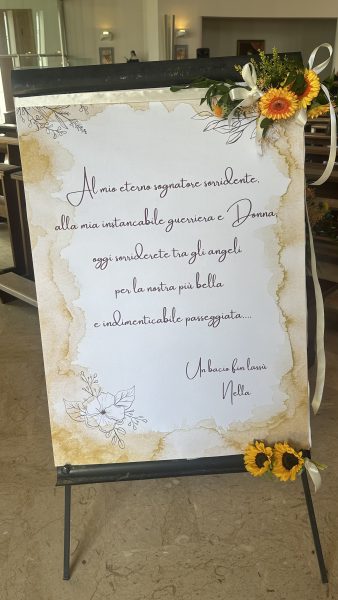 Al mio eterno sognatore sorridente,
alla mia instancabile guerriera e Donna,
oggi sorriderete tra gli angeli
per la nostra più bella
e indimenticabile passeggiata....
Un bacio fin lassù
Nella